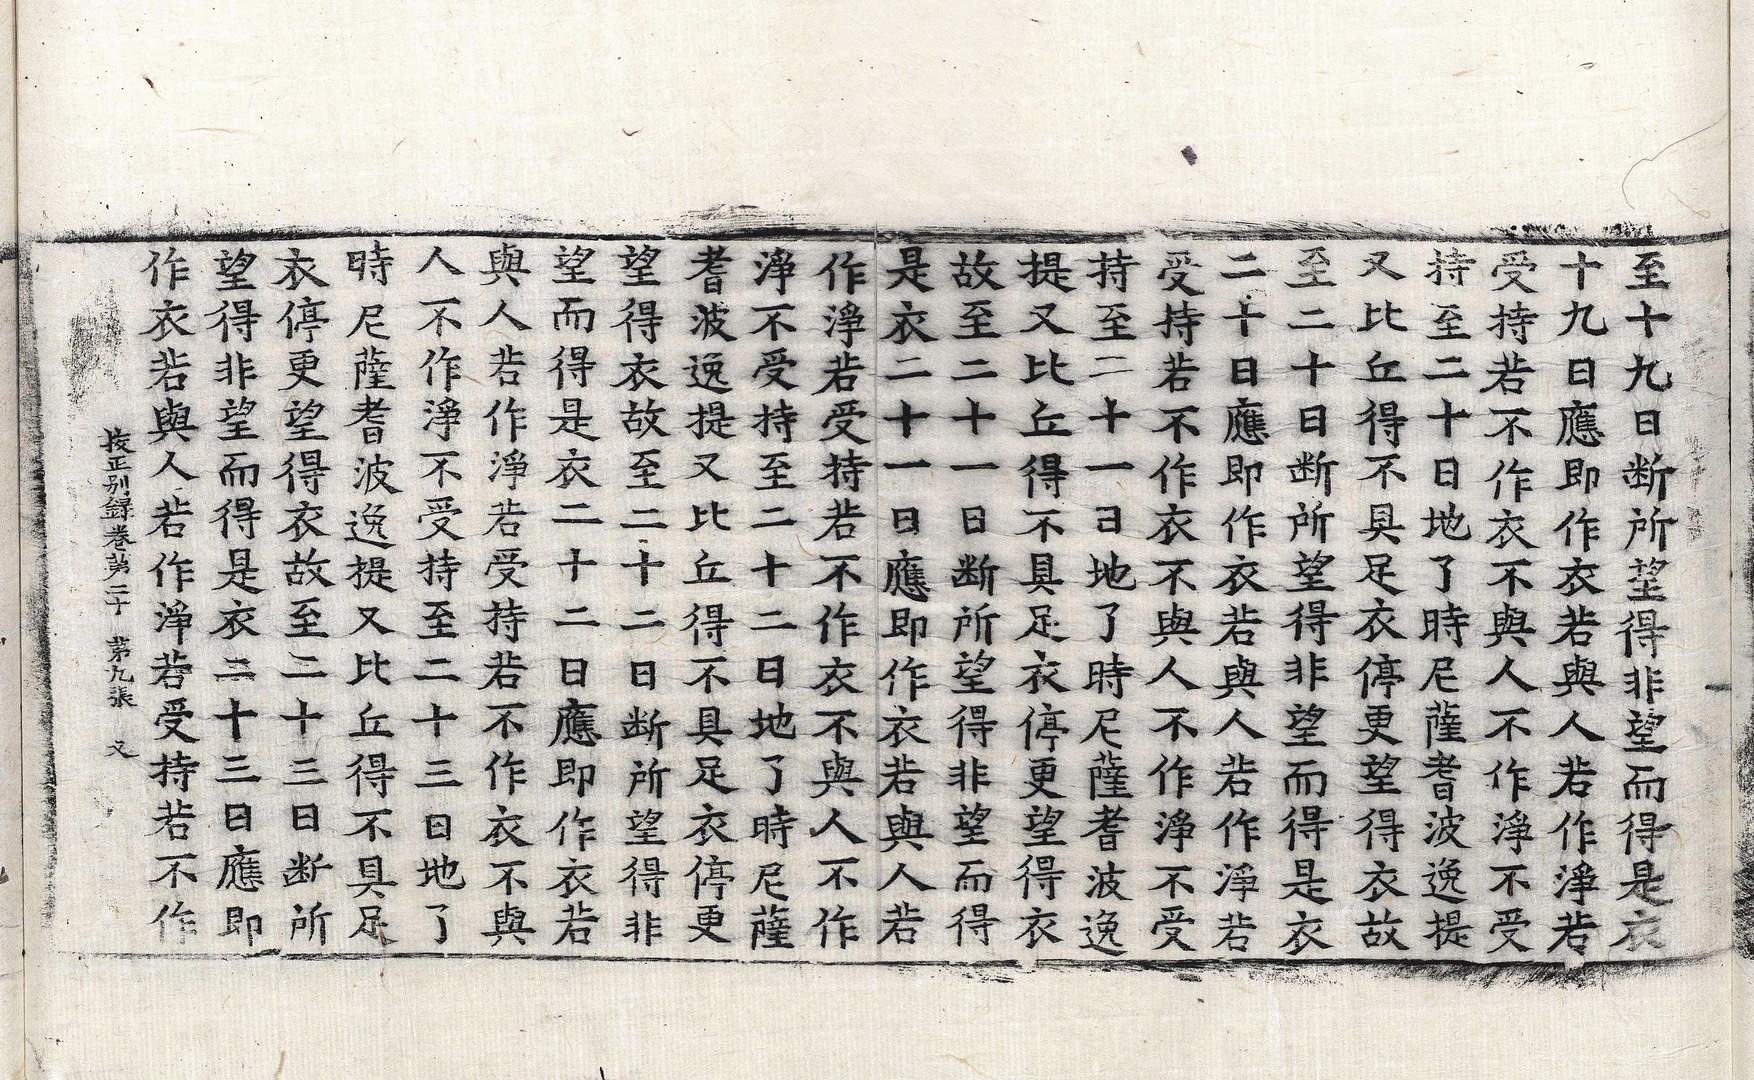 至十九日断所望得非望而得是衣
十九日應即作衣若與人若作淨若
受持若不作衣不與人不作淨不受
持至二十日地了時尼薩耆波逸提
又比丘得不具足衣停更望得衣故
至二十日断所望得非望而得是衣
二十日應即作衣若與人若作淨若
受持若不作衣不與人不作淨不受
持至二十一日地了時尼薩耆波逸
提又比丘得不具足衣停更望得衣
故至二十一日断所望得非望而得
是衣二十一日應即作衣若與人若
作淨若受持若不作衣不與人不作
淨不受持至二十二日地了時尼薩
耆波逸提又比丘得不具足衣停更
望得衣故至二十二日断所望得非
望而得是衣二十二日應即作衣若
與人若作淨若受持若不作衣不與
人不作淨不受持至二十三日地了
時尼薩耆波逸提又比丘得不具足
衣停更望得衣故至二十三日断所
望得非望而得是衣二十三日應即
作衣若與人若作淨若受持若不作
按正别録卷第二十 第九張 又